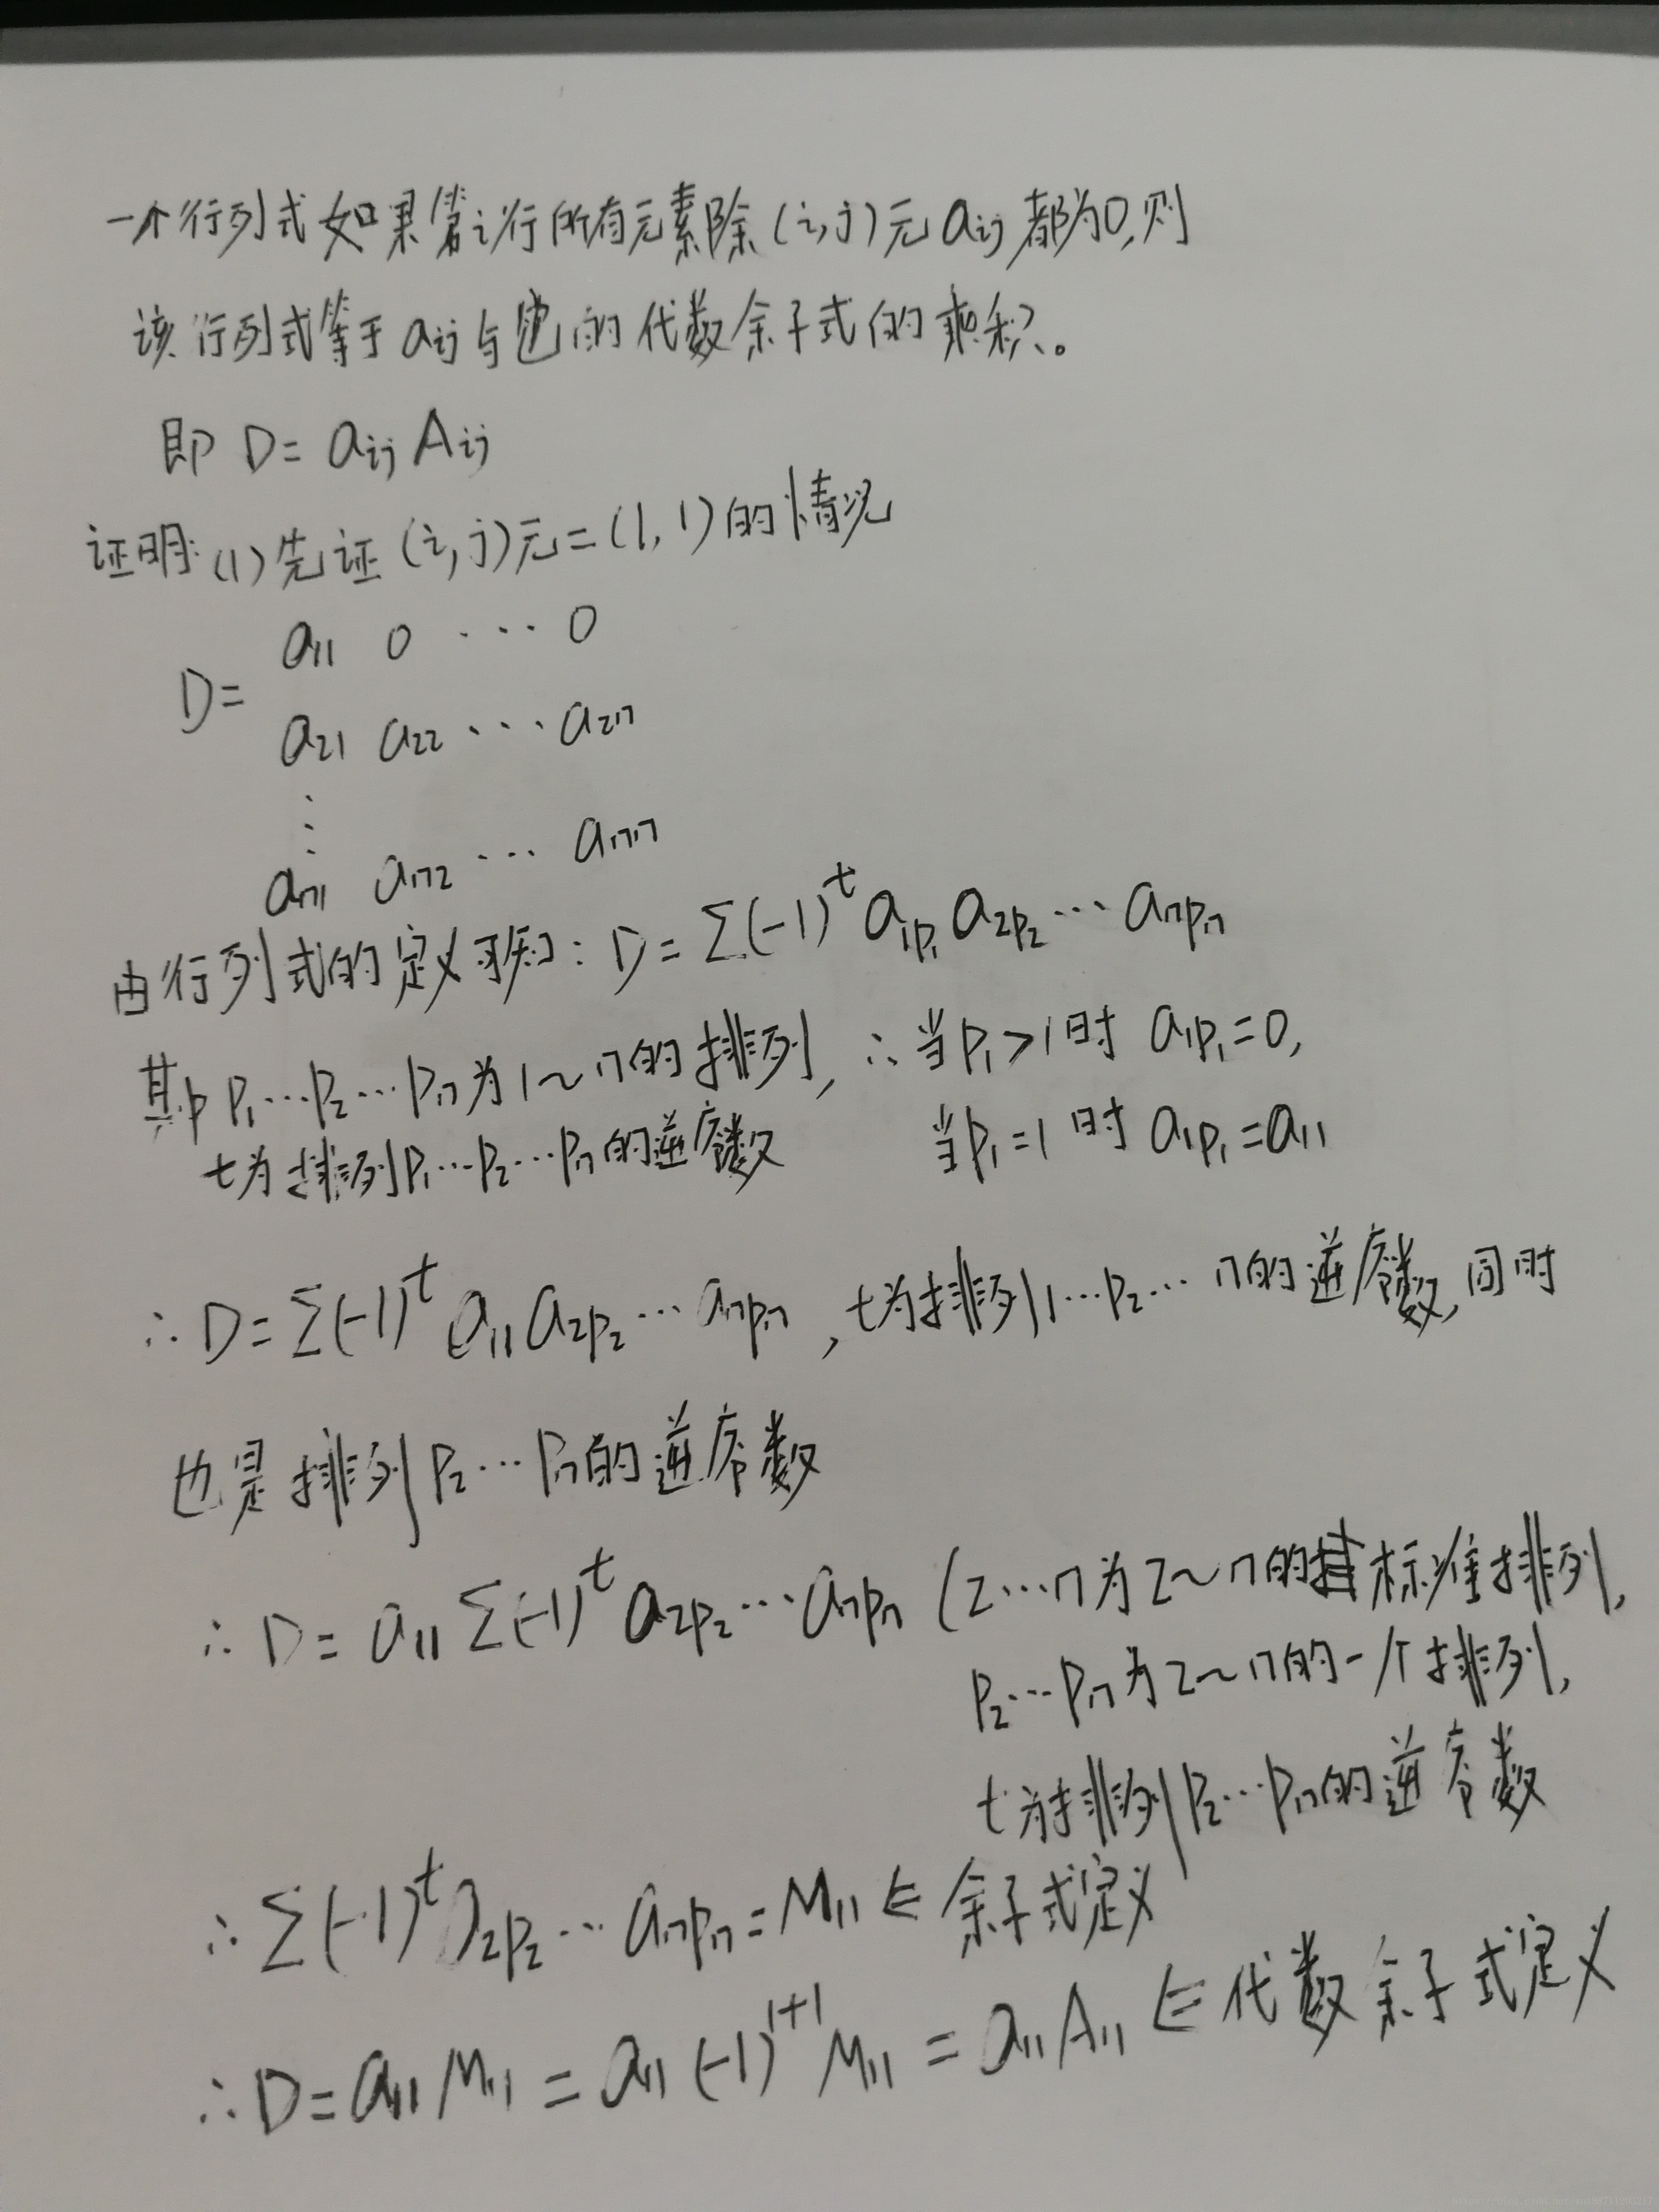 一个行列式如果第i行所有元素除(i,j)元aij都为0,则
该行列式等于aij与它的代数余子式的乘积。
即 D= aij Aij
证明:(1)先证(i,j)元=(1,1)的情况
a11 0 ··· 0
D=
a21 a22 ··· a2n
⋮
an1 an2 ··· ann
由行列式的定义可知: D=Σ(-1)^t a1p1 a2p2 ··· anpn
其中P1···P2···Pn为1~n的排列, ∴当P1>1时 a1p1=0,
t为排列P1···P2···Pn的逆序数 当P1=1时 a1p1=a11
∴D=Σ(-1)^t a11 a2p2 ··· anpn ,t为排列1···P2··· n的逆序数,同时
也是排列P2···Pn的逆序数
∴D= a11 Σ(-1)^t a2p2 ··· anpn (2···n为2~n的标准排列,
P2···Pn为2~n的一个排列,
t为排列P2···Pn的逆序数
∴Σ(-1)^t a2p2 ··· anpn=M11 ⇐ 余子式定义
∴D=a11 M11 = a11 (-1)^1+1 M11 = a11 A11 ⇐ 代数余子式定义